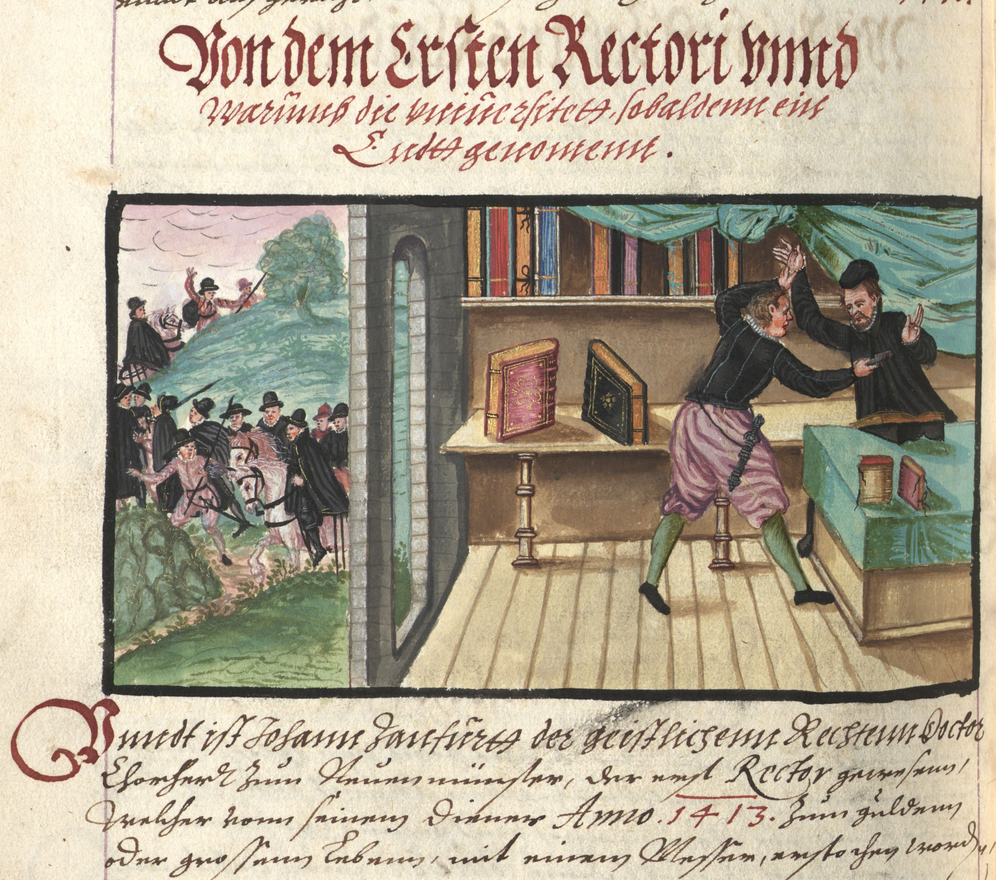 Von dem Ersten Rectori vnnd
Warumb die vniuersitett, sobaldenn ein
Endtt genomenn.
Vnndt ist Johann Zanfurtt der geistlichenn Rechtenn Doctor
Chorherr zum Neuenmünster, der erst Rector gewesenn,
welcher vonn seinem Diener Anno. 1413. Zum guldenn
oder grossenn Lebenn, mit einem Messer, erstochen word